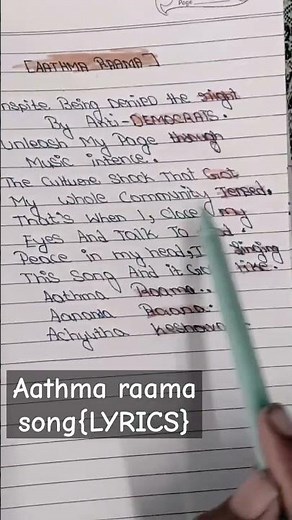 Page
[AATHMA RAAMA]
nspite Being Denied the right
By Anti-DEMOCRATS.
Unleash My Rage through
Music intence..
The Culture Shock That Got
My Whole Community Tensed.
That's When I, Close my
Eyes And Talk To
Peace in my head, I Singing
This Song And it Goes like.
Aathma Raama..
Aananda Raama..
Achyutha Keshava
Aathma raama
song{LYRICS}